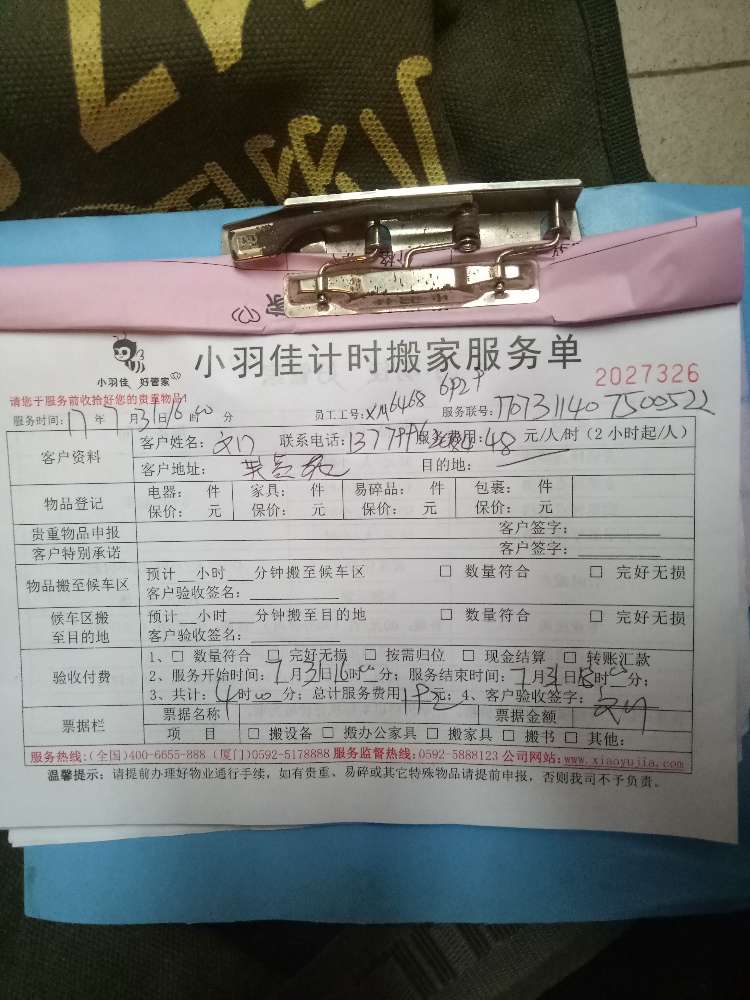 小羽佳 好管家
小羽佳计时搬家服务单
2027326
请您于服务前收拾好您的贵重物品!
服务时间: 17 年 7 月 31 日 16 时 00 分 员工工号: XM6468 服务联号:
客户资料
客户姓名: 联系电话: 服务费用: 48 元/人/时 (2 小时起/人)
客户地址: 目的地:
物品登记
电器: 件 家具: 件 易碎品: 件 包裹: 件
保价: 元 保价: 元 保价: 元 保价: 元
贵重物品申报 客户签字:
客户特别承诺 客户签字:
物品搬至候车区
预计__小时___分钟搬至候车区 □ 数量符合 □ 完好无损
客户验收签名:
候车区搬至目的地
预计__小时___分钟搬至目的地 □ 数量符合 □ 完好无损
客户验收签名:
验收付费
1、□ 数量符合 □ 完好无损 □ 按需归位 □ 现金结算 □ 转账汇款
2、服务开始时间: 7 月 31 日 16 时 00 分; 服务结束时间: 7 月 31 日 18 时 分;
3、共计: 4 时 00 分; 总计服务费用 元; 4、客户验收签字:
票据栏
票据名称 票据金额
项 目 □ 搬设备 □ 搬办公家具 □ 搬家具 □ 搬书 □ 其他:
服务热线:(全国)400-6655-888 (厦门)0592-5178888 服务监督热线:0592-5888123 公司网站:www.xiaoyujia.com
温馨提示: 请提前办理好物业通行手续, 如有贵重、易碎或其它特殊物品请提前申报, 否则我司不予负责。